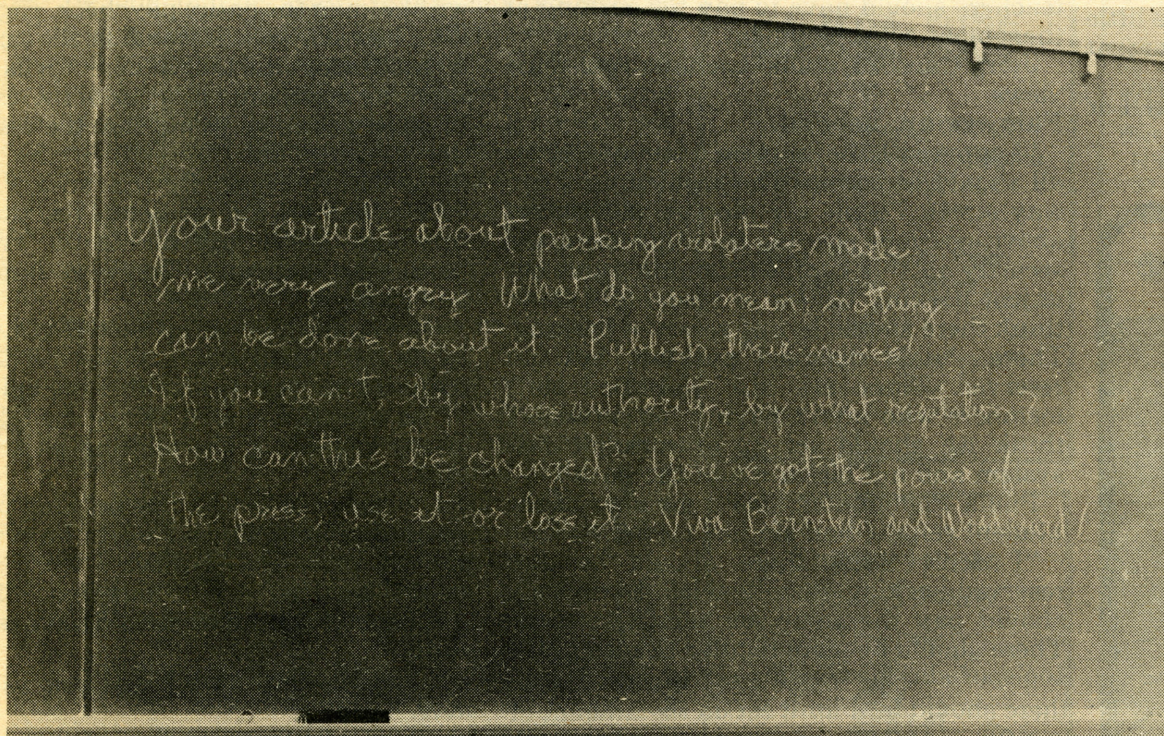 Your article about parking violaters made
me very angry. What do you mean; nothing
can be done about it. Publish their names!
If you can't, by whose authority, by what regulation?
How can this be changed? You've got the power of
the press, use it or lose it. Viva Bernstein and Woodward!